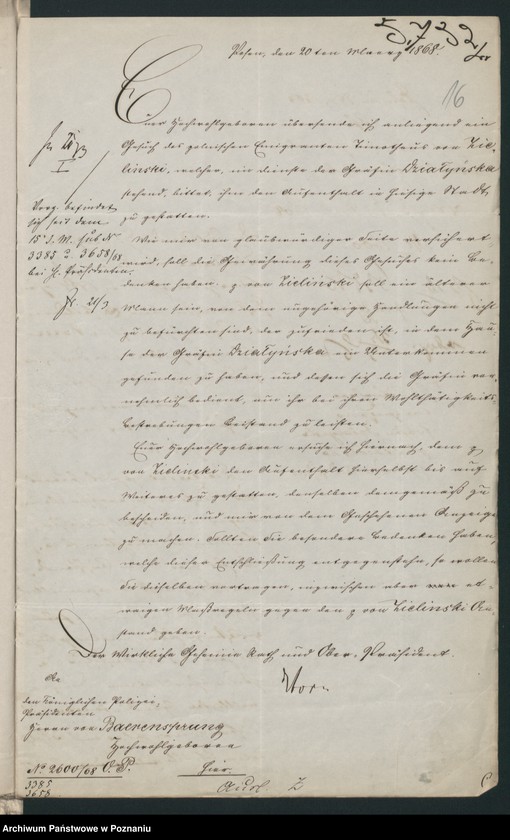 5732/68
Posen, den 20ten Maerz 1868.
16
Euer Hochwohlgeboren übersende ich anliegend ein
Gesuch des polnischen Emigranten Timotheus von Zie-
linski, welcher, im Dienste der Gräfin Działyńska
stehend, bittet, ihm den Aufenthalt in hiesiger Stadt
zu gestatten.
Wie mir von glaubwürdiger Seite versichert
wird, soll die Gewährung dieses Gesuches kein Be-
denken haben. p von Zielinski soll ein älterer
Mann sein, von dem ungehörige Handlungen nicht
zu befürchten sind, der zufrieden ist, in dem Hau-
se der Gräfin Działyńska ein Unterkommen
gefunden zu haben, und dessen sich die Gräfin vor-
nehmlich bedient, um ihr bei ihren Wohlthätigkeits-
bestrebungen Beistand zu leisten.
Euer Hochwohlgeboren ersuche ich hiernach, dem p
von Zielinski den Aufenthalt hierselbst bis auf
Weiteres zu gestatten, denselben demgemäß zu
bescheiden, und mir von dem Geschehenen Anzeige
zu machen. Sollten Sie besondere Bedenken haben,
welche dieser Entschließung entgegenstehn, so wollen
Sie dieselben vortragen, inzwischen aber et-
waigen Maßregeln gegen den p von Zielinski An-
stand geben.
Der Wirkliche Geheime Rath und Ober-Präsident.
Horn
Vorg. befindet
sich seit dem
15 d. M. sub N
3385 2. 3658/68
bei H. Präsidenten.
21/3
An
den Königlichen Polizei-
Präsidenten
Herrn von Baerensprung
Hochwohlgeboren
hier.
No 2600/68 O.P.
3385
3658